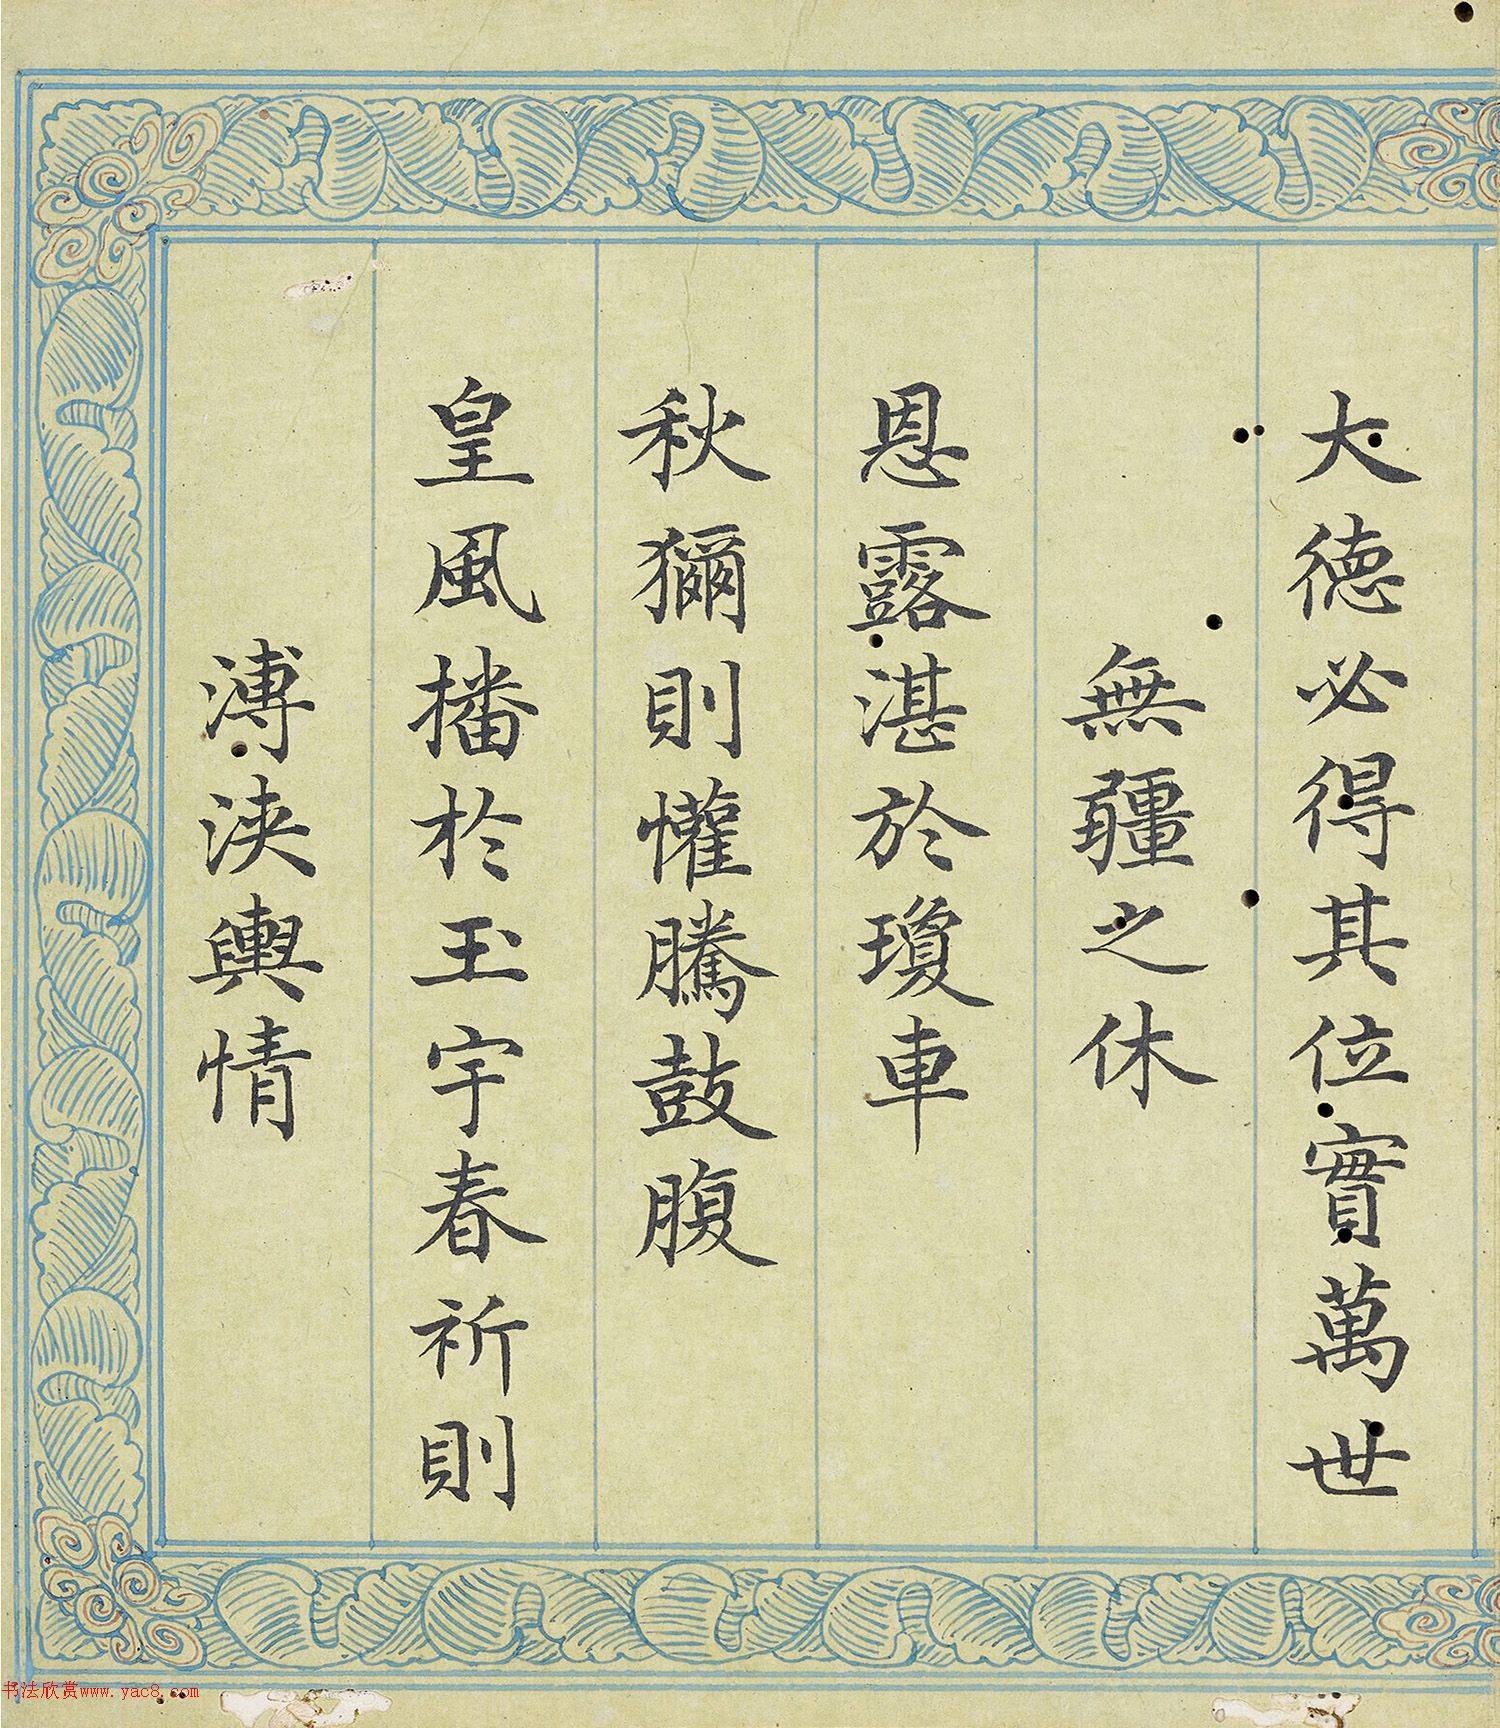 大德必得其位實萬世
無疆之休
恩露湛於瓊車
秋獮則懽騰鼓腹
皇風播於玉宇春祈則
溥浹輿情
书法欣赏www.yac8.com